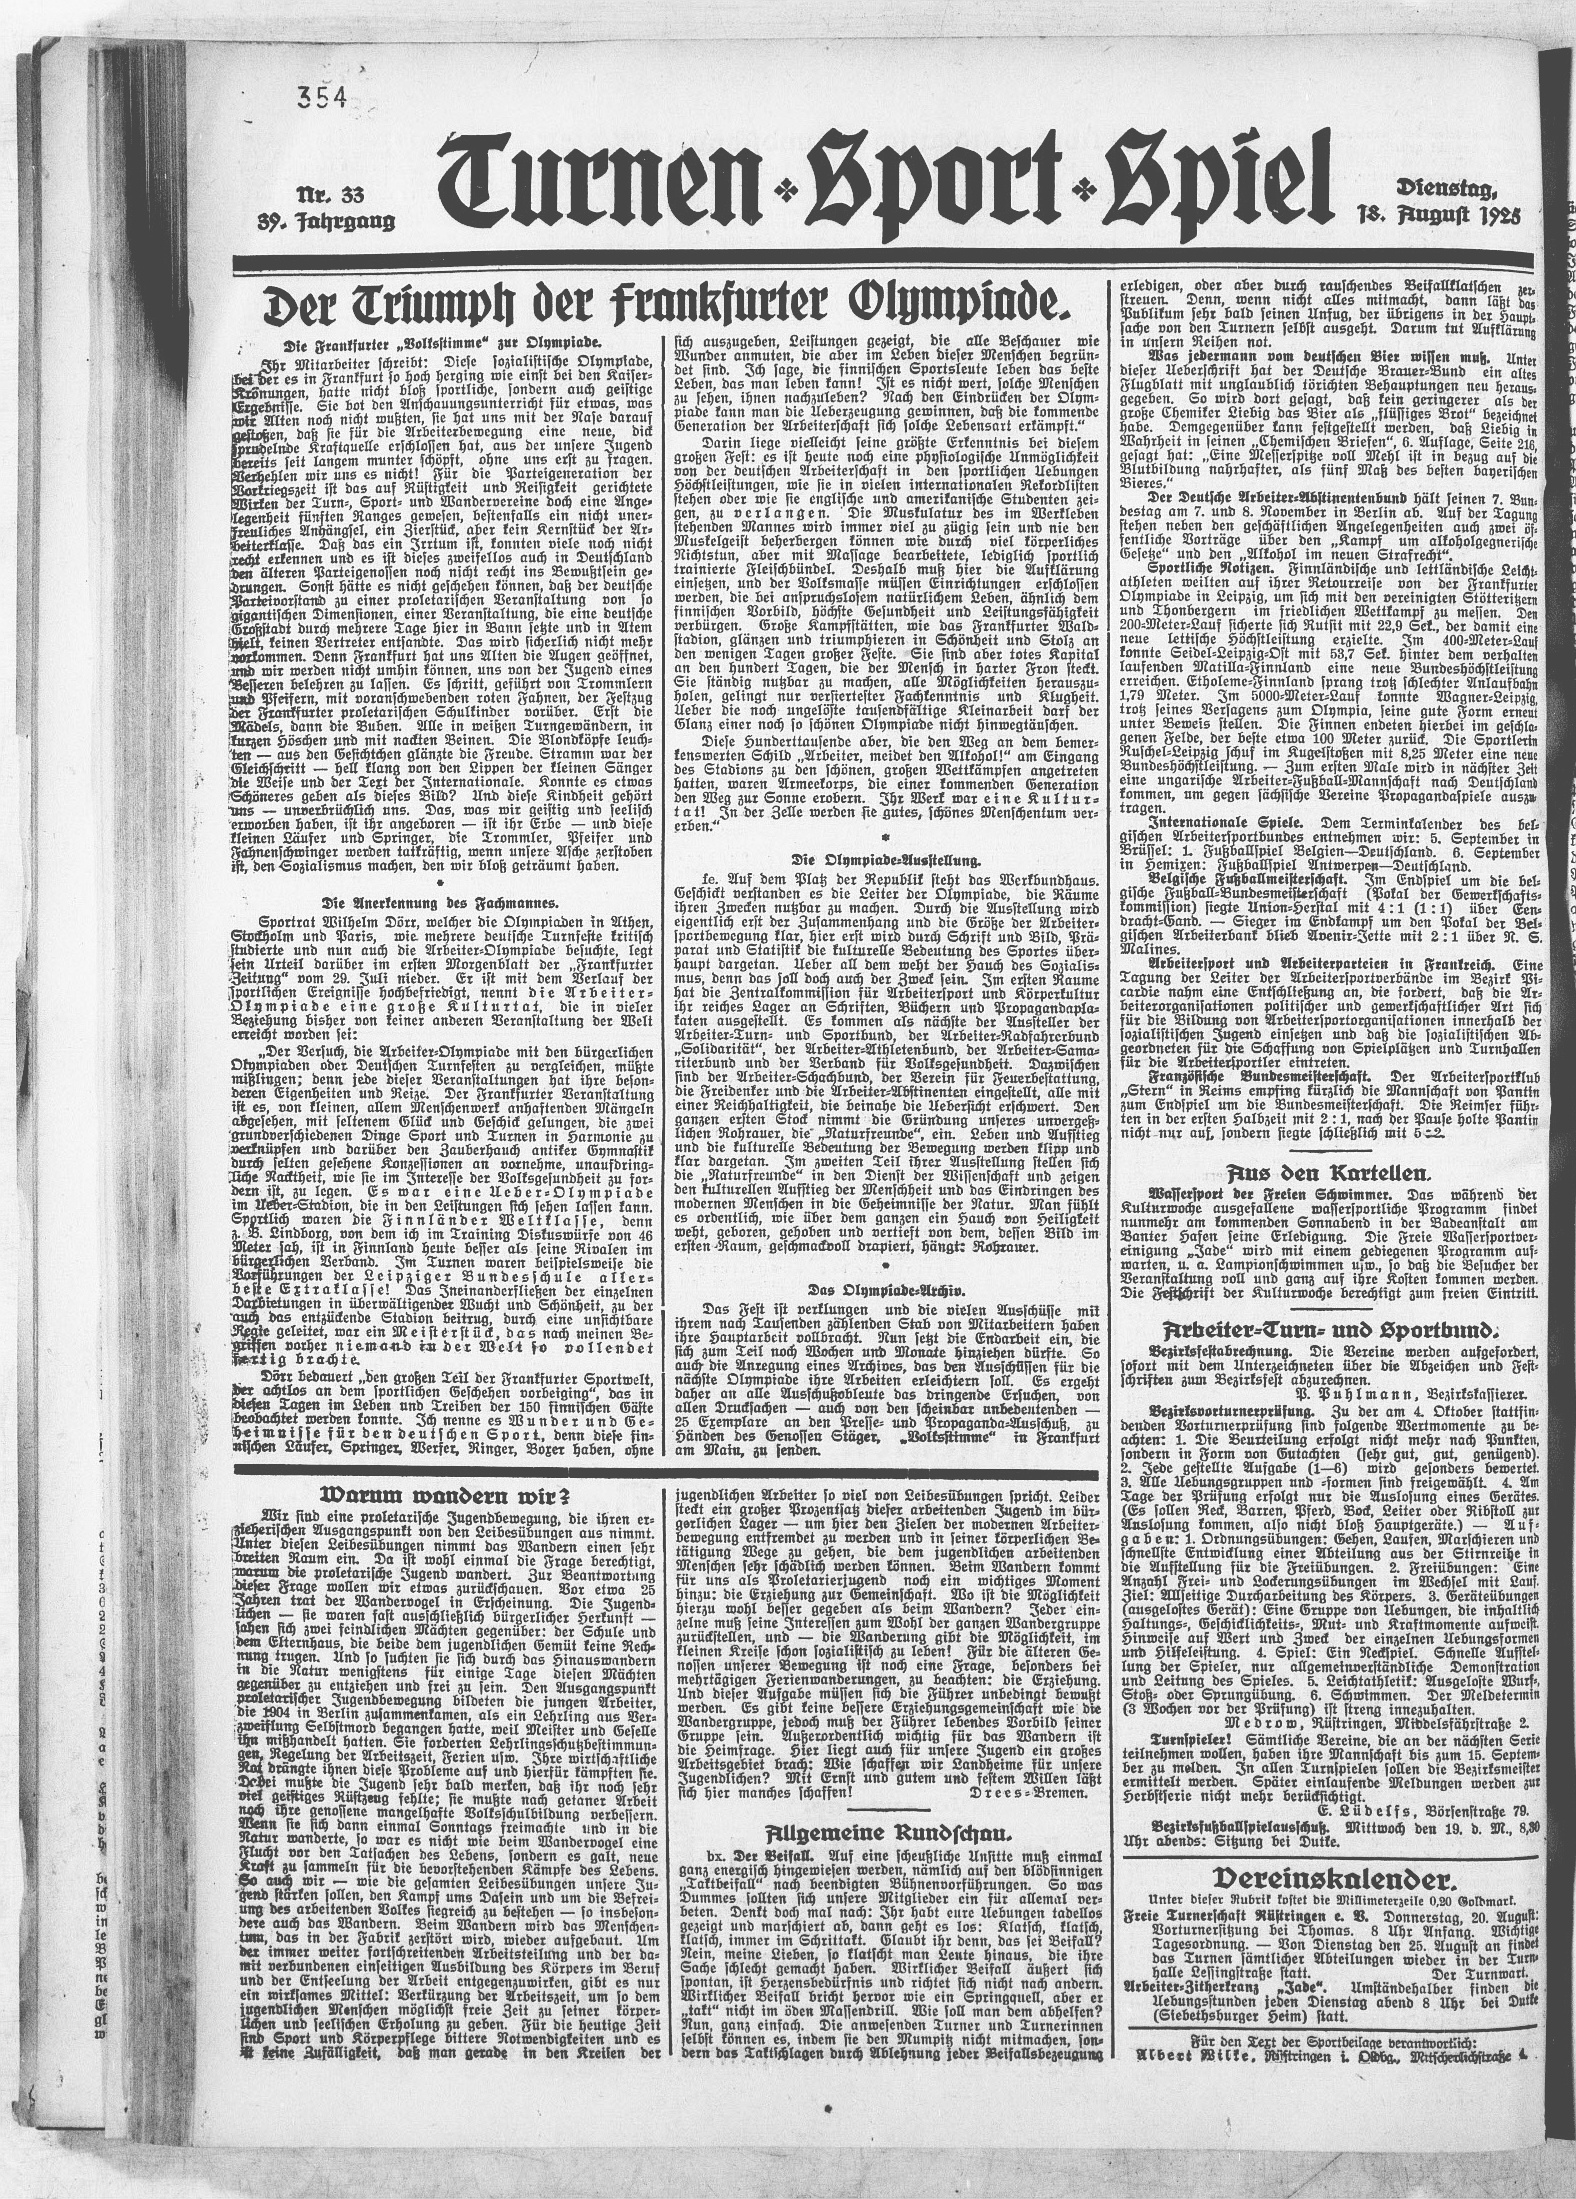 354
Nr. 33
39. Jahrgang
Turnen ✤ Sport ✤ Spiel
Dienstag,
18. August 1925
Der Triumph der Frankfurter Olympiade.
Die Frankfurter „Volksstimme“ zur Olympiade.
Ihr Mitarbeiter schreibt: Diese sozialistische Olympiade,
bei der es in Frankfurt so hoch herging wie einst bei den Kaiser-
Krönungen, hatte nicht bloß sportliche, sondern auch geistige
Ergebnisse. Sie bot den Anschauungsunterricht für etwas, was
wir Alten noch nicht wußten, sie hat uns mit der Nase darauf
gestoßen, daß sie für die Arbeiterbewegung eine neue, dick
sprudelnde Kraftquelle erschlossen hat, aus der unsere Jugend
bereits seit langem munter schöpft, ohne uns erst zu fragen.
Verhehlen wir uns es nicht! Für die Parteigeneration der
Vorkriegszeit ist das auf Rüstigkeit und Reisigkeit gerichtete
Wirken der Turn-, Sport- und Wandervereine doch eine Ange-
legenheit fünften Ranges gewesen, bestenfalls ein nicht uner-
freuliches Anhängsel, ein Zierstück, aber kein Kernstück der Ar-
beiterklasse. Daß das ein Irrtum ist, konnten viele noch nicht
recht erkennen und es ist dieses zweifellos auch in Deutschland
den älteren Parteigenossen noch nicht recht ins Bewußtsein ge-
drungen. Sonst hätte es nicht geschehen können, daß der deutsche
Parteivorstand zu einer proletarischen Veranstaltung von so
gigantischen Dimensionen, einer Veranstaltung, die eine deutsche
Großstadt durch mehrere Tage hier in Bann setzte und in Atem
hielt, keinen Vertreter entsandte. Das wird sicherlich nicht mehr
vorkommen. Denn Frankfurt hat uns Alten die Augen geöffnet,
und wir werden nicht umhin können, uns von der Jugend eines
Besseren belehren zu lassen. Es schritt, geführt von Trommlern
und Pfeifern, mit voranschwebenden roten Fahnen, der Festzug
der Frankfurter proletarischen Schulkinder vorüber. Erst die
Mädels, dann die Buben. Alle in weißen Turngewändern, in
kurzen Höschen und mit nackten Beinen. Die Blondköpfe leuch-
ten — aus den Gesichtchen glänzte die Freude. Stramm war der
Gleichschritt — hell klang von den Lippen der kleinen Sänger
die Weise und der Text der Internationale. Konnte es etwas
Schöneres geben als dieses Bild? Und diese Kindheit gehört
uns — unverbrüchlich uns. Das, was wir geistig und seelisch
erworben haben, ist ihr angeboren — ist ihr Erbe — und diese
kleinen Läufer und Springer, die Trommler, Pfeifer und
Fahnenschwinger werden tatkräftig, wenn unsere Asche zerstoben
ist, den Sozialismus machen, den wir bloß geträumt haben.
*
Die Anerkennung des Fachmannes.
Sportrat Wilhelm Dörr, welcher die Olympiaden in Athen,
Stockholm und Paris, wie mehrere deutsche Turnfeste kritisch
studierte und nun auch die Arbeiter-Olympiade besuchte, legt
sein Urteil darüber im ersten Morgenblatt der „Frankfurter
Zeitung“ vom 29. Juli nieder. Er ist mit dem Verlauf der
sportlichen Ereignisse hochbefriedigt, nennt die Arbeiter-
Olympiade eine große Kulturtat, die in vieler
Beziehung bisher von keiner anderen Veranstaltung der Welt
erreicht worden sei:
„Der Versuch, die Arbeiter-Olympiade mit den bürgerlichen
Olympiaden oder Deutschen Turnfesten zu vergleichen, müßte
mißlingen; denn jede dieser Veranstaltungen hat ihre beson-
deren Eigenheiten und Reize. Der Frankfurter Veranstaltung
ist es, von kleinen, allem Menschenwerk anhaftenden Mängeln
abgesehen, mit seltenem Glück und Geschick gelungen, die zwei
grundverschiedenen Dinge Sport und Turnen in Harmonie zu
verknüpfen und darüber den Zauberhauch antiker Gymnastik
durch selten gesehene Konzessionen an vornehme, unaufdring-
liche Nacktheit, wie sie im Interesse der Volksgesundheit zu for-
dern ist, zu legen. Es war eine Ueber-Olympiade
im Ueber-Stadion, die in den Leistungen sich sehen lassen kann.
Sportlich waren die Finnländer Weltklasse, denn
z. B. Lindborg, von dem ich im Training Diskuswürfe von 46
Meter sah, ist in Finnland heute besser als seine Rivalen im
bürgerlichen Verband. Im Turnen waren beispielsweise die
Vorführungen der Leipziger Bundesschule aller-
beste Extraklasse! Das Ineinanderfließen der einzelnen
Darbietungen in überwältigender Wucht und Schönheit, zu der
auch das entzückende Stadion beitrug, durch eine unsichtbare
Regie geleitet, war ein Meisterstück, das nach meinen Be-
griffen vorher niemand in der Welt so vollendet
fertig brachte.
Dörr bedauert „den großen Teil der Frankfurter Sportwelt,
der achtlos an dem sportlichen Geschehen vorbeiging“, das in
diesen Tagen im Leben und Treiben der 150 finnischen Gäste
beobachtet werden konnte. Ich nenne es Wunder und Ge-
heimnisse für den deutschen Sport, denn diese fin-
nischen Läufer, Springer, Werfer, Ringer, Boxer haben, ohne
sich auszugeben, Leistungen gezeigt, die alle Beschauer wie
Wunder anmuten, die aber im Leben dieser Menschen begrün-
det sind. Ich sage, die finnischen Sportsleute leben das beste
Leben, das man leben kann! Ist es nicht wert, solche Menschen
zu sehen, ihnen nachzuleben? Nach den Eindrücken der Olym-
piade kann man die Ueberzeugung gewinnen, daß die kommende
Generation der Arbeiterschaft sich solche Lebensart erkämpft.“
Darin liege vielleicht seine größte Erkenntnis bei diesem
großen Fest: es ist heute noch eine physiologische Unmöglichkeit
von der deutschen Arbeiterschaft in den sportlichen Uebungen
Höchstleistungen, wie sie in vielen internationalen Rekordlisten
stehen oder wie sie englische und amerikanische Studenten zei-
gen, zu verlangen. Die Muskulatur des im Werkleben
stehenden Mannes wird immer viel zu zügig sein und nie den
Muskelgeist beherbergen können wie durch viel körperliches
Nichtstun, aber mit Massage bearbeitete, lediglich sportlich
trainierte Fleischbündel. Deshalb muß hier die Aufklärung
einsetzen, und der Volksmasse müssen Einrichtungen erschlossen
werden, die bei anspruchslosem natürlichem Leben, ähnlich dem
finnischen Vorbild, höchste Gesundheit und Leistungsfähigkeit
verbürgen. Große Kampfstätten, wie das Frankfurter Wald-
stadion, glänzen und triumphieren in Schönheit und Stolz an
den wenigen Tagen großer Feste. Sie sind aber totes Kapital
an den hundert Tagen, die der Mensch in harter Fron steckt.
Sie ständig nutzbar zu machen, alle Möglichkeiten herauszu-
holen, gelingt nur versiertester Fachkenntnis und Klugheit.
Ueber die noch ungelöste tausendfältige Kleinarbeit darf der
Glanz einer noch so schönen Olympiade nicht hinwegtäuschen.
Diese Hunderttausende aber, die den Weg an dem bemer-
kenswerten Schild „Arbeiter, meidet den Alkohol!“ am Eingang
des Stadions zu den schönen, großen Wettkämpfen angetreten
hatten, waren Armeekorps, die einer kommenden Generation
den Weg zur Sonne erobern. Ihr Werk war eine Kultur-
tat! In der Zelle werden sie gutes, schönes Menschentum ver-
erben.“
*
Die Olympiade-Ausstellung.
fe. Auf dem Platz der Republik steht das Werkbundhaus.
Geschickt verstanden es die Leiter der Olympiade, die Räume
ihren Zwecken nutzbar zu machen. Durch die Ausstellung wird
eigentlich erst der Zusammenhang und die Größe der Arbeiter-
sportbewegung klar, hier erst wird durch Schrift und Bild, Prä-
parat und Statistik die kulturelle Bedeutung des Sportes über-
haupt dargetan. Ueber all dem weht der Hauch des Sozialis-
mus, denn das soll doch auch der Zweck sein. Im ersten Raume
hat die Zentralkommission für Arbeitersport und Körperkultur
ihr reiches Lager an Schriften, Büchern und Propagandapla-
katen ausgestellt. Es kommen als nächste der Aussteller der
Arbeiter-Turn- und Sportbund, der Arbeiter-Radfahrerbund
„Solidarität“, der Arbeiter-Athletenbund, der Arbeiter-Sama-
riterbund und der Verband für Volksgesundheit. Dazwischen
sind der Arbeiter-Schachbund, der Verein für Feuerbestattung,
die Freidenker und die Arbeiter-Abstinenten eingestellt, alle mit
einer Reichhaltigkeit, die beinahe die Uebersicht erschwert. Den
ganzen ersten Stock nimmt die Gründung unseres unvergeß-
lichen Rohrauer, die „Naturfreunde“, ein. Leben und Aufstieg
und die kulturelle Bedeutung der Bewegung werden klipp und
klar dargetan. Im zweiten Teil ihrer Ausstellung stellen sich
die „Naturfreunde“ in den Dienst der Wissenschaft und zeigen
den kulturellen Aufstieg der Menschheit und das Eindringen des
modernen Menschen in die Geheimnisse der Natur. Man fühlt
es ordentlich, wie über dem ganzen ein Hauch von Heiligkeit
weht, geboren, gehoben und vertieft von dem, dessen Bild im
ersten Raum, geschmackvoll drapiert, hängt: Rohrauer.
*
Das Olympiade-Archiv.
Das Fest ist verklungen und die vielen Ausschüsse mit
ihrem nach Tausenden zählenden Stab von Mitarbeitern haben
ihre Hauptarbeit vollbracht. Nun setzt die Endarbeit ein, die
sich zum Teil noch Wochen und Monate hinziehen dürfte. So
auch die Anregung eines Archives, das den Ausschüssen für die
nächste Olympiade ihre Arbeiten erleichtern soll. Es ergeht
daher an alle Ausschußobleute das dringende Ersuchen, von
allen Drucksachen — auch von den scheinbar unbedeutenden —
25 Exemplare an den Presse- und Propaganda-Ausschuß, zu
Händen des Genossen Stäger, „Volksstimme“ in Frankfurt
am Main, zu senden.
Warum wandern wir?
Wir sind eine proletarische Jugendbewegung, die ihren er-
zieherischen Ausgangspunkt von den Leibesübungen aus nimmt.
Unter diesen Leibesübungen nimmt das Wandern einen sehr
breiten Raum ein. Da ist wohl einmal die Frage berechtigt,
warum die proletarische Jugend wandert. Zur Beantwortung
dieser Frage wollen wir etwas zurückschauen. Vor etwa 25
Jahren trat der Wandervogel in Erscheinung. Die Jugend-
lichen — sie waren fast ausschließlich bürgerlicher Herkunft —
sahen sich zwei feindlichen Mächten gegenüber: der Schule und
dem Elternhaus, die beide dem jugendlichen Gemüt keine Rech-
nung trugen. Und so suchten sie sich durch das Hinauswandern
in die Natur wenigstens für einige Tage diesen Mächten
gegenüber zu entziehen und frei zu sein. Den Ausgangspunkt
proletarischer Jugendbewegung bildeten die jungen Arbeiter,
die 1904 in Berlin zusammenkamen, als ein Lehrling aus Ver-
zweiflung Selbstmord begangen hatte, weil Meister und Geselle
ihn mißhandelt hatten. Sie forderten Lehrlingsschutzbestimmun-
gen, Regelung der Arbeitszeit, Ferien usw. Ihre wirtschaftliche
Not drängte ihnen diese Probleme auf und hierfür kämpften sie.
Dabei mußte die Jugend sehr bald merken, daß ihr noch sehr
viel geistiges Rüstzeug fehlte; sie mußte nach getaner Arbeit
noch ihre genossene mangelhafte Volksschulbildung verbessern.
Wenn sie sich dann einmal Sonntags freimachte und in die
Natur wanderte, so war es nicht wie beim Wandervogel eine
Flucht vor den Tatsachen des Lebens, sondern es galt, neue
Kraft zu sammeln für die bevorstehenden Kämpfe des Lebens.
So auch wir — wie die gesamten Leibesübungen unsere Ju-
gend stärken sollen, den Kampf ums Dasein und um die Befrei-
ung des arbeitenden Volkes siegreich zu bestehen — so insbeson-
dere auch das Wandern. Beim Wandern wird das Menschen-
tum, das in der Fabrik zerstört wird, wieder aufgebaut. Um
der immer weiter fortschreitenden Arbeitsteilung und der da-
mit verbundenen einseitigen Ausbildung des Körpers im Beruf
und der Entseelung der Arbeit entgegenzuwirken, gibt es nur
ein wirksames Mittel: Verkürzung der Arbeitszeit, um so dem
jugendlichen Menschen möglichst freie Zeit zu seiner körper-
lichen und seelischen Erholung zu geben. Für die heutige Zeit
sind Sport und Körperpflege bittere Notwendigkeiten und es
ist keine Zufälligkeit, daß man gerade in den Kreisen der
jugendlichen Arbeiter so viel von Leibesübungen spricht. Leider
steckt ein großer Prozentsatz dieser arbeitenden Jugend im bür-
gerlichen Lager — um hier den Zielen der modernen Arbeiter-
bewegung entfremdet zu werden und in seiner körperlichen Be-
tätigung Wege zu gehen, die dem jugendlichen arbeitenden
Menschen sehr schädlich werden können. Beim Wandern kommt
für uns als Proletarierjugend noch ein wichtiges Moment
hinzu: die Erziehung zur Gemeinschaft. Wo ist die Möglichkeit
hierzu wohl besser gegeben als beim Wandern? Jeder ein-
zelne muß seine Interessen zum Wohl der ganzen Wandergruppe
zurückstellen, und — die Wanderung gibt die Möglichkeit, im
kleinen Kreise schon sozialistisch zu leben! Für die älteren Ge-
nossen unserer Bewegung ist noch eine Frage, besonders bei
mehrtägigen Ferienwanderungen, zu beachten: die Erziehung.
Und dieser Aufgabe müssen sich die Führer unbedingt bewußt
werden. Es gibt keine bessere Erziehungsgemeinschaft wie die
Wandergruppe, jedoch muß der Führer lebendes Vorbild seiner
Gruppe sein. Außerordentlich wichtig für das Wandern ist
die Heimfrage. Hier liegt auch für unsere Jugend ein großes
Arbeitsgebiet brach: Wie schaffen wir Landheime für unsere
Jugendlichen? Mit Ernst und gutem und festem Willen läßt
sich hier manches schaffen! Drees-Bremen.
Allgemeine Rundschau.
bx. Der Beifall. Auf eine scheußliche Unsitte muß einmal
ganz energisch hingewiesen werden, nämlich auf den blödsinnigen
„Taktbeifall“ nach beendigten Bühnenvorführungen. So was
Dummes sollten sich unsere Mitglieder ein für allemal ver-
beten. Denkt doch mal nach: Ihr habt eure Uebungen tadellos
gezeigt und marschiert ab, dann geht es los: Klatsch, klatsch,
klatsch, immer im Schrittakt. Glaubt ihr denn, das sei Beifall?
Nein, meine Lieben, so klatscht man Leute hinaus, die ihre
Sache schlecht gemacht haben. Wirklicher Beifall äußert sich
spontan, ist Herzensbedürfnis und richtet sich nicht nach andern.
Wirklicher Beifall bricht hervor wie ein Springquell, aber er
„takt“ nicht im öden Massendrill. Wie soll man dem abhelfen?
Nun, ganz einfach. Die anwesenden Turner und Turnerinnen
selbst können es, indem sie den Mumpitz nicht mitmachen, son-
dern das Taktschlagen durch Ablehnung jeder Beifallsbezeugung
erledigen, oder aber durch rauschendes Beifallklatschen zer-
streuen. Denn, wenn nicht alles mitmacht, dann läßt das
Publikum sehr bald seinen Unfug, der übrigens in der Haupt-
sache von den Turnern selbst ausgeht. Darum tut Aufklärung
in unsern Reihen not.
Was jedermann vom deutschen Bier wissen muß. Unter
dieser Ueberschrift hat der Deutsche Brauer-Bund ein altes
Flugblatt mit unglaublich törichten Behauptungen neu heraus-
gegeben. So wird dort gesagt, daß kein geringerer als der
große Chemiker Liebig das Bier als „flüssiges Brot“ bezeichnet
habe. Demgegenüber kann festgestellt werden, daß Liebig in
Wahrheit in seinen „Chemischen Briefen“, 6. Auflage, Seite 216,
gesagt hat: „Eine Messerspitze voll Mehl ist in bezug auf die
Blutbildung nahrhafter, als fünf Maß des besten bayerischen
Bieres.“
Der Deutsche Arbeiter-Abstinentenbund hält seinen 7. Bun-
destag am 7. und 8. November in Berlin ab. Auf der Tagung
stehen neben den geschäftlichen Angelegenheiten auch zwei öf-
fentliche Vorträge über den „Kampf um alkoholgegnerische
Gesetze“ und den „Alkohol im neuen Strafrecht“.
Sportliche Notizen. Finnländische und lettländische Leicht-
athleten weilten auf ihrer Retourreise von der Frankfurter
Olympiade in Leipzig, um sich mit den vereinigten Stötteritzern
und Thonbergern im friedlichen Wettkampf zu messen. Den
200-Meter-Lauf sicherte sich Rutsit mit 22,9 Sek., der damit eine
neue lettische Höchstleistung erzielte. Im 400-Meter-Lauf
konnte Seidel-Leipzig-Ost mit 53,7 Sek. hinter dem verhalten
laufenden Matilla-Finnland eine neue Bundeshöchstleistung
erreichen. Etholeme-Finnland sprang trotz schlechter Anlaufbahn
1,79 Meter. Im 5000-Meter-Lauf konnte Wagner-Leipzig,
trotz seines Versagens zum Olympia, seine gute Form erneut
unter Beweis stellen. Die Finnen endeten hierbei im geschla-
genen Felde, der beste etwa 100 Meter zurück. Die Sportlerin
Ruschel-Leipzig schuf im Kugelstoßen mit 8,25 Meter eine neue
Bundeshöchstleistung. — Zum ersten Male wird in nächster Zeit
eine ungarische Arbeiter-Fußball-Mannschaft nach Deutschland
kommen, um gegen sächsische Vereine Propagandaspiele auszu-
tragen.
Internationale Spiele. Dem Terminkalender des bel-
gischen Arbeitersportbundes entnehmen wir: 5. September in
Brüssel: 1. Fußballspiel Belgien—Deutschland. 6. September
in Hemixen: Fußballspiel Antwerpen—Deutschland.
Belgische Fußballmeisterschaft. Im Endspiel um die bel-
gische Fußball-Bundesmeisterschaft (Pokal der Gewerkschafts-
kommission) siegte Union-Herstal mit 4:1 (1:1) über Een-
dracht-Gand. — Sieger im Endkampf um den Pokal der Bel-
gischen Arbeiterbank blieb Avenir-Jette mit 2:1 über R. S.
Malines.
Arbeitersport und Arbeiterparteien in Frankreich. Eine
Tagung der Leiter der Arbeitersportverbände im Bezirk Pi-
cardie nahm eine Entschließung an, die fordert, daß die Ar-
beiterorganisationen politischer und gewerkschaftlicher Art sich
für die Bildung von Arbeitersportorganisationen innerhalb der
sozialistischen Jugend einsetzen und daß die sozialistischen Ab-
geordneten für die Schaffung von Spielplätzen und Turnhallen
für die Arbeitersportler eintreten.
Französische Bundesmeisterschaft. Der Arbeitersportklub
„Stern“ in Reims empfing kürzlich die Mannschaft von Pantin
zum Endspiel um die Bundesmeisterschaft. Die Reimser führ-
ten in der ersten Halbzeit mit 2:1, nach der Pause holte Pantin
nicht nur auf, sondern siegte schließlich mit 5:2.
Aus den Kartellen.
Wassersport der Freien Schwimmer. Das während der
Kulturwoche ausgefallene wassersportliche Programm findet
nunmehr am kommenden Sonnabend in der Badeanstalt am
Banter Hafen seine Erledigung. Die Freie Wassersportver-
einigung „Jade“ wird mit einem gediegenen Programm auf-
warten, u. a. Lampionschwimmen usw., so daß die Besucher der
Veranstaltung voll und ganz auf ihre Kosten kommen werden.
Die Festschrift der Kulturwoche berechtigt zum freien Eintritt.
Arbeiter-Turn- und Sportbund.
Bezirksfestabrechnung. Die Vereine werden aufgefordert,
sofort mit dem Unterzeichneten über die Abzeichen und Fest-
schriften zum Bezirksfest abzurechnen.
P. Puhlmann, Bezirkskassierer.
Bezirksvorturnerprüfung. Zu der am 4. Oktober stattfin-
denden Vorturnerprüfung sind folgende Wertmomente zu be-
achten: 1. Die Beurteilung erfolgt nicht mehr nach Punkten,
sondern in Form von Gutachten (sehr gut, gut, genügend).
2. Jede gestellte Aufgabe (1—6) wird gesonders bewertet.
3. Alle Uebungsgruppen und -formen sind freigewählt. 4. Am
Tage der Prüfung erfolgt nur die Auslosung eines Gerätes.
(Es sollen Reck, Barren, Pferd, Bock, Leiter oder Ribstoll zur
Auslosung kommen, also nicht bloß Hauptgeräte.) — Auf-
gaben: 1. Ordnungsübungen: Gehen, Laufen, Marschieren und
schnellste Entwicklung einer Abteilung aus der Stirnreihe in
die Aufstellung für die Freiübungen. 2. Freiübungen: Eine
Anzahl Frei- und Lockerungsübungen im Wechsel mit Lauf.
Ziel: Allseitige Durcharbeitung des Körpers. 3. Geräteübungen
(ausgelostes Gerät): Eine Gruppe von Uebungen, die inhaltlich
Haltungs-, Geschicklichkeits-, Mut- und Kraftmomente aufweist.
Hinweise auf Wert und Zweck der einzelnen Uebungsformen
und Hilfeleistung. 4. Spiel: Ein Neckspiel. Schnelle Aufstel-
lung der Spieler, nur allgemeinverständliche Demonstration
und Leitung des Spieles. 5. Leichtathletik: Ausgeloste Wurf-,
Stoß- oder Sprungübung. 6. Schwimmen. Der Meldetermin
(3 Wochen vor der Prüfung) ist streng innezuhalten.
Medrow, Rüstringen, Middelsfährstraße 2.
Turnspieler! Sämtliche Vereine, die an der nächsten Serie
teilnehmen wollen, haben ihre Mannschaft bis zum 15. Septem-
ber zu melden. In allen Turnspielen sollen die Bezirksmeister
ermittelt werden. Später einlaufende Meldungen werden zur
Herbstserie nicht mehr berücksichtigt.
E. Lüdelfs, Börsenstraße 79.
Bezirksfußballspielausschuß. Mittwoch den 19. d. M., 8,30
Uhr abends: Sitzung bei Dutke.
Vereinskalender.
Unter dieser Rubrik kostet die Millimeterzeile 0,20 Goldmark.
Freie Turnerschaft Rüstringen e. V. Donnerstag, 20. August:
Vorturnersitzung bei Thomas. 8 Uhr Anfang. Wichtige
Tagesordnung. — Von Dienstag den 25. August an findet
das Turnen sämtlicher Abteilungen wieder in der Turn-
halle Lessingstraße statt. Der Turnwart.
Arbeiter-Zitherkranz „Jade“. Umständehalber finden die
Uebungsstunden jeden Dienstag abend 8 Uhr bei Dutke
(Siebethsburger Heim) statt.
Für den Text der Sportbeilage verantwortlich:
Albert Wilke, Rüstringen i. Oldbg., Mitscherlichstraße 4.